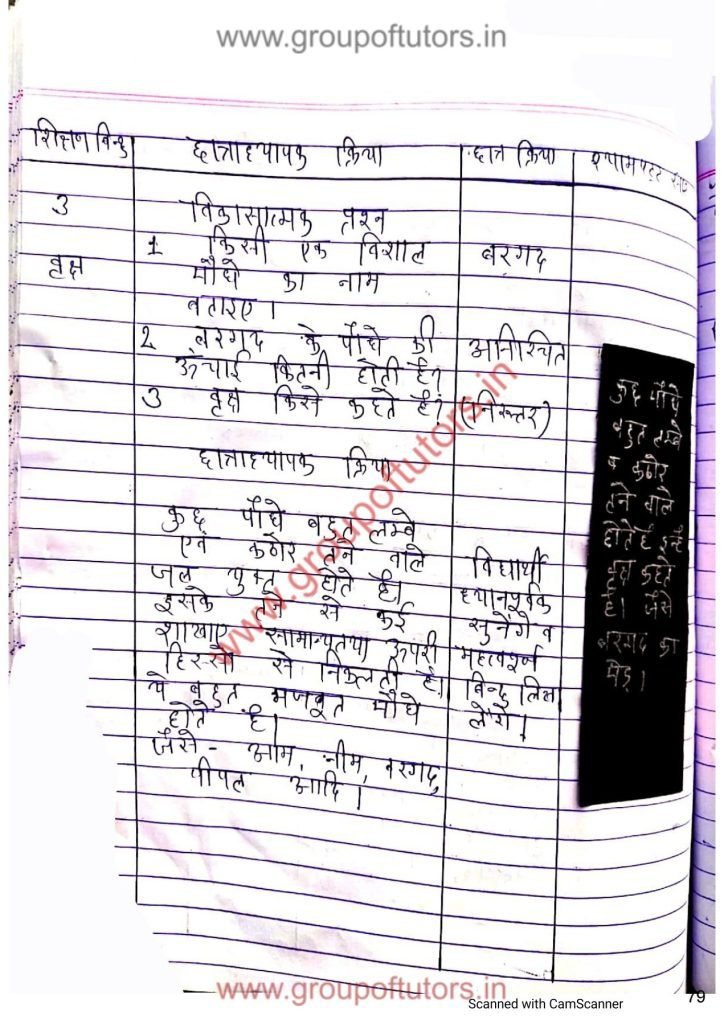 www.groupoftutors.in
शिक्षण बिन्दु छात्राध्यापक क्रिया छात्र क्रिया श्यामपट्ट
3 विकासात्मक प्रश्न
1 किसी एक विशाल बरगद
वृक्ष पौधे का नाम
बताइए।
2 बरगद के पौधे की अनिश्चित
ऊंचाई कितनी होती है?
3 वृक्ष किसे कहते है? (निरूत्तर)
छात्राध्यापक क्रिया
कुछ पौधे बहुत लम्बे
एवं कठोर तने वाले विद्यार्थी
युक्त होते है। ध्यानपूर्वक
इसके तने से कई सुनेंगे व
शाखाए सामान्यतया ऊपरी महत्वपूर्ण
हिस्सो से निकलती है। बिन्दु लिख
ये बहुत मजबूत पौधे लेंगे।
होते है।
जैसे - आम, नीम, बरगद,
पीपल आदि।
कुछ पौधे
बहुत लम्बे
व कठोर
तने वाले
होते है इन्हें
वृक्ष कहते
है। जैसे
बरगद का
पेड़।
www.groupoftutors.in
www.groupoftutors.in
79
Scanned with CamScanner